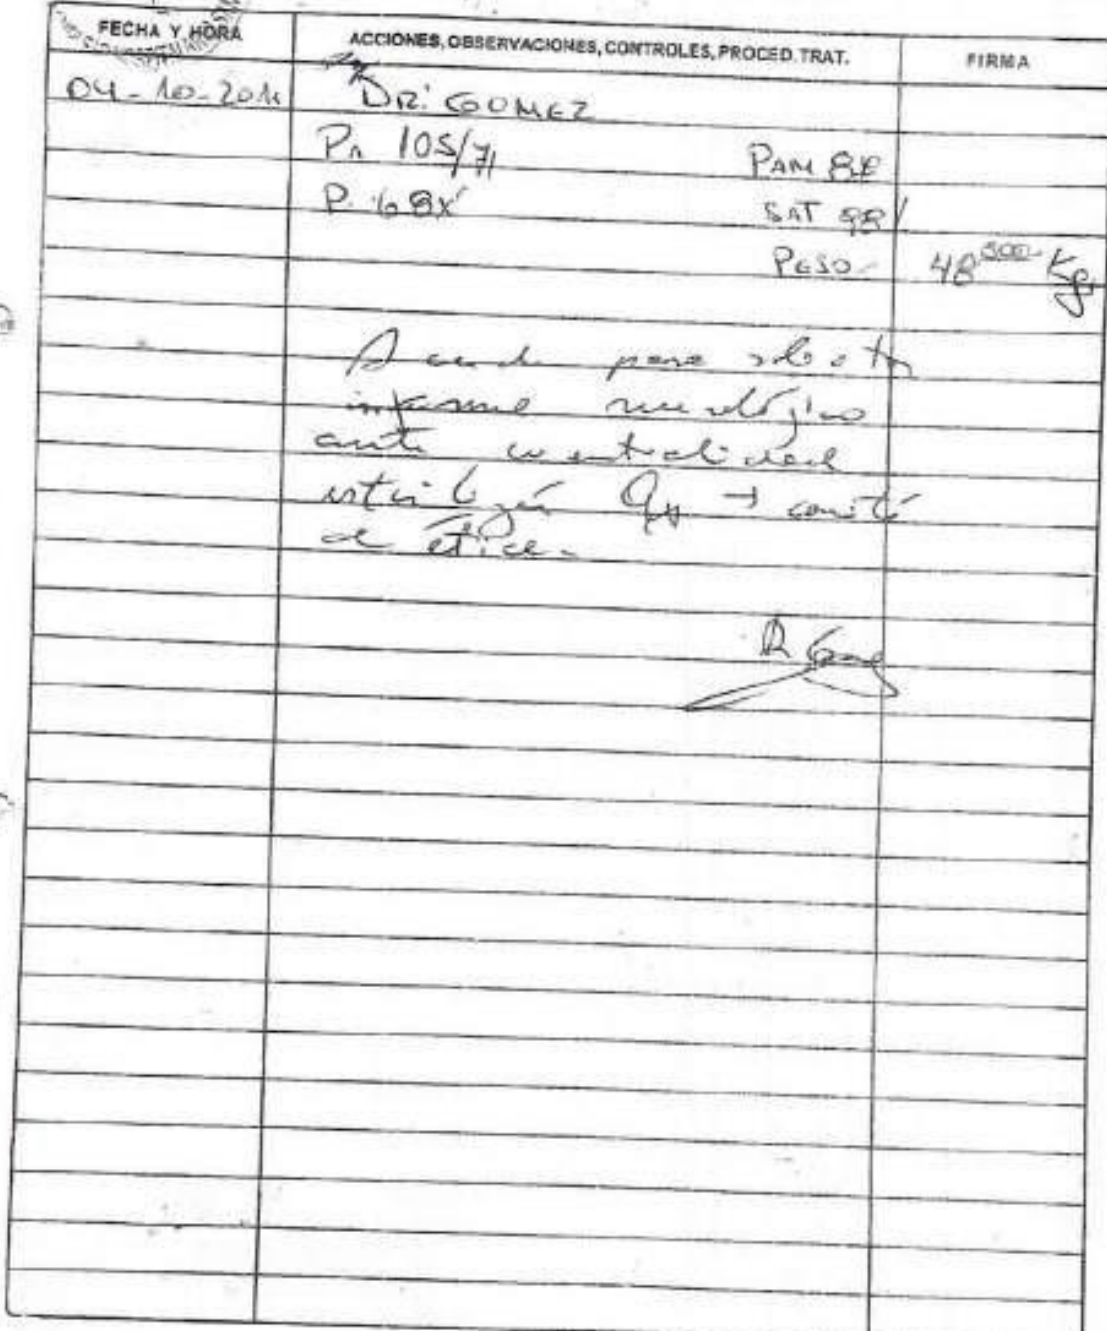 FECHA Y HORA ACCIONES, OBSERVACIONES, CONTROLES, PROCED. TRAT. FIRMA
04-10-201 DR. GOMEZ
PA 105/71 PAM 82
P. 68x' SAT 98
PESO 48 500 Kg
Acude para solicitar
informe neurológico
ante eventualidad
esterilización Qx → comité
de ética.